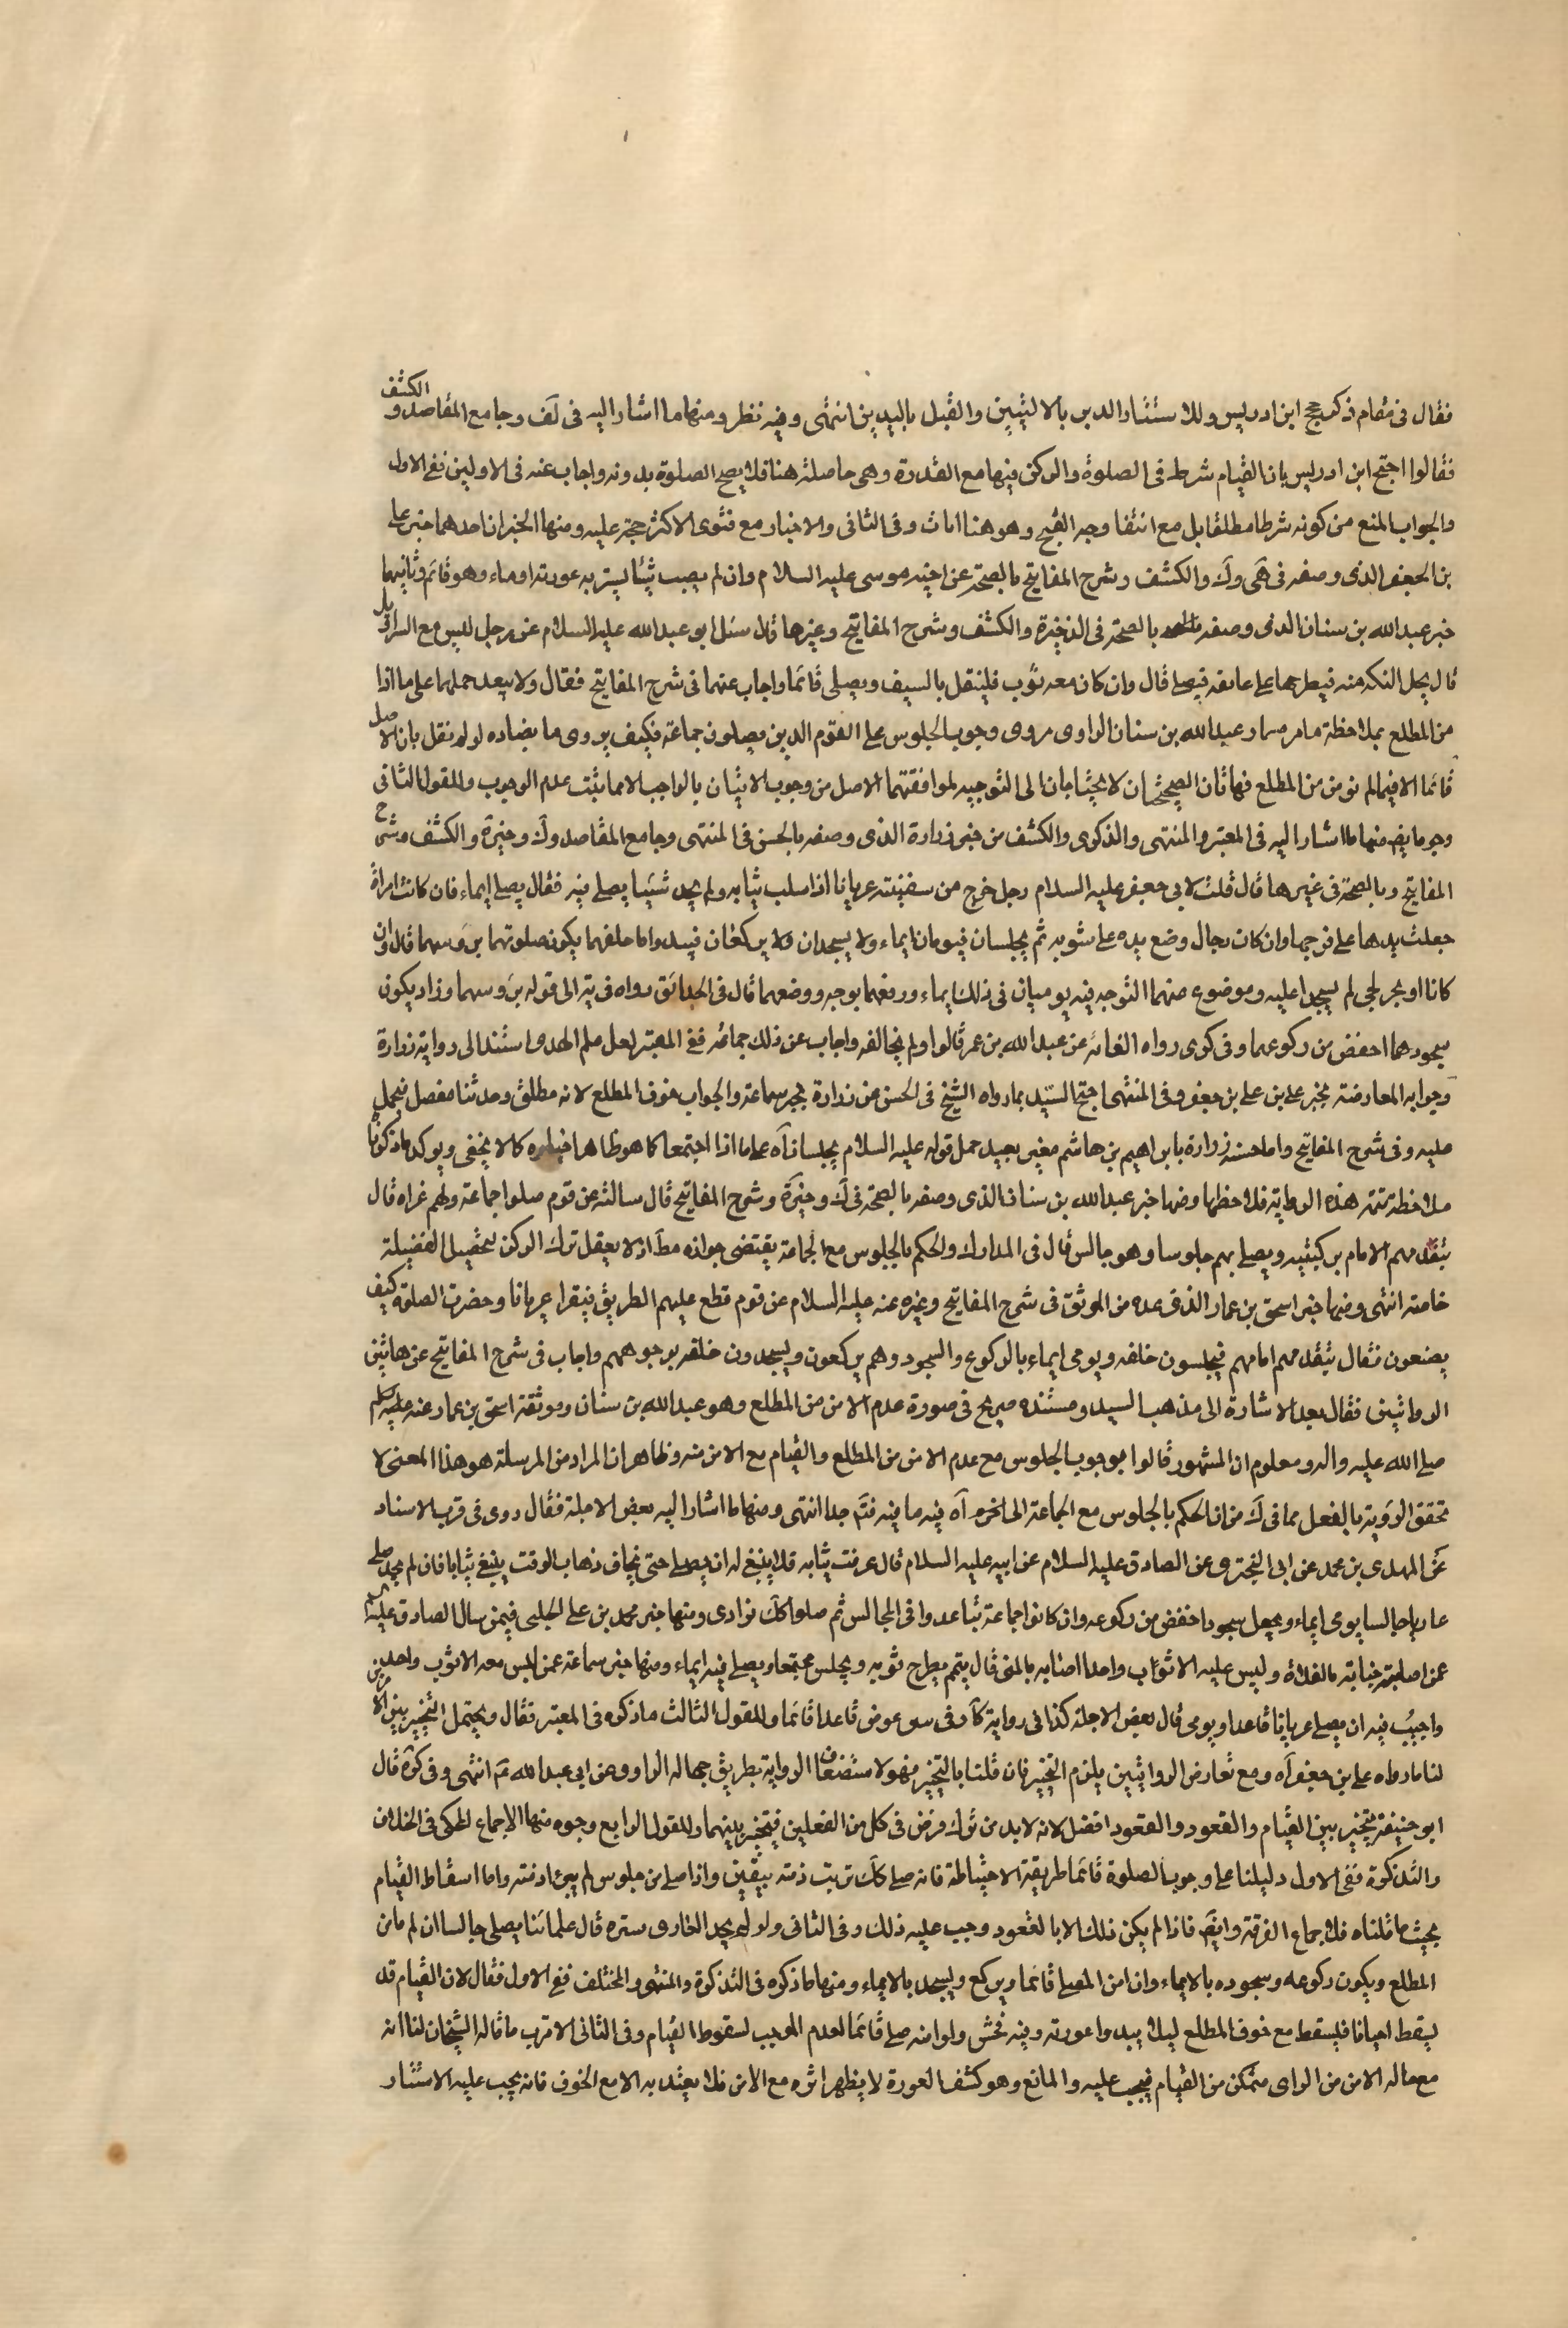 فقال فى مقام ذكر حجج ابن ادريس وللاستتار الدبر بالاليتين والقبل باليدين انتهى وفيه نظر ومنها ما اشار اليه فى لف وجامع المقاصد والكشف
فقالوا احتج ابن ادريس بان القيام شرط فى الصلوة والركن فيها مع القدرة وهى حاصلة هنا فلا يصح الصلوة بدونه واجاب عنه فى الاولين ففى الاول
والجواب المنع من كونه شرطا مطلقا بل مع انتفا وجه القبح وهو هنا ثابت وفى الثانى والاخبار مع فتوى الاكثر حجة عليه ومنها الخبران احدهما خبر على
بن الجعفر الذى وصفه فى هى وك والكشف وشرح المفاتيح بالصحة عن اخيه موسى عليه السلام وان لم يصب شيئا يستر به عورته اوماء وهو قائم وثانيهما
خبر عبد الله بن سنان الذى وصفه بالصحة فى الذخيرة والكشف وشرح المفاتيح وغيرها قال سئل ابو عبد الله عليه السلام عن رجل ليس معه الا سراويل
قال يحل التكة منه فيطرحها على عاتقه فيصلى قال وان كان معه ثوب فليتقل بالسيف ويصلى قائما واجاب عنهما فى شرح المفاتيح فقال ولا يبعد حملهما على ما اذا
من المطلع بملاحظة ما مر سيما وعبد الله بن سنان الراوى مروى وجوب الجلوس على القوم الذين يصلون جماعة فكيف يروى ما يضاده لو لم نقل بان الاصل
قائما الا فيما لم نومن من المطلع فهاتان الصحيحتان لا يحتاجان الى التوجيه لموافقتهما الاصل من وجوب الاتيان بالواجب الا ما يثبت عدم الوجوب وللقول الثانى
وجوه ايض منها ما اشار اليه فى المعتبر والمنتهى والذكرى والكشف من خبر زرارة الذى وصفه بالحسن فى المنتهى وجامع المقاصد وك وخيرة والكشف وشرح
المفاتيح وبالصحة فى غيرها قال قلت لابى جعفر عليه السلام رجل خرج من سفينته عريانا اذا سلب ثيابه ولم يجد شيئا يصلى فيه فقال يصلى ايماء فان كانت امراة
جعلت يدها على فرجها وان كان رجال وضع يده على سوئته ثم يجلسان فيوميان ايماء ولا يسجدان ولا يركعان فيبدوا ما خلفهما يكون صلوتهما بروسهما قال وان
كانا او بحر لجى لم يسجدا عليه وموضوع عنهما التوجه فيه يوميان فى ذلك ايماء ورفعهما بوجه ووضعهما قال فى الحدائق رواه فى يه الى قوله بروسهما وزاد يكون
سجودهما اخفض من ركوعهما وفى كرى رواه العامة عن عبد الله بن عمر قالوا ولم يخالفه واجاب عن ذلك جماعة ففى المعتبر لعل علم الهدى استند الى رواية زرارة
وجوابه المعارضة بخبر على بن جعفر وفى المنتهى احتج السيد بما رواه الشيخ فى الحسن عن زرارة والجواب خوف المطلع لانه مطلق وحديثنا مفصل فيحمل
عليه وفى شرح المفاتيح واما حسنة زرارة بابراهيم بن هاشم فغير بعيد حمل قوله عليه السلام يجلسان آه على ما اذا اجتمعا كما هو ظاهر كما لا يخفى ويوكد ما ذكرنا
ملاحظة تتمة هذه الرواية فلاحظها ومنها خبر عبد الله بن سنان الذى وصفه بالصحة فى ك وخيرة وشرح المفاتيح قال سالته عن قوم صلوا جماعة وهم عراة قال
يتقدمهم الامام بركبتيه ويصلى بهم جلوسا وهو جالس قال فى المدارك والحكم بالجلوس مع الجماعة يقتضى جوازه مطلقا اذ لا يعقل ترك الركن لتحصيل الفضيلة
خاصة انتهى ومنها خبر اسحق بن عمار الذى عده من الموثق فى شرح المفاتيح وغيره عنه عليه السلام عن قوم قطع عليهم الطريق فبقوا عريانا وحضرت الصلوة كيف
يصنعون فقال يتقدمهم امامهم فيجلسون خلفه ويومى ايماء بالركوع والسجود وهم يركعون ويسجدون خلفه بوجوههم واجاب فى شرح المفاتيح عن هاتين
الروايتين فقال بعد الاشارة الى مذهب السيد ومستنده صريح فى صورة عدم الامن من المطلع وهو عبد الله بن سنان وموثقة اسحق بن عمار عنه عليه السلم
صلى الله عليه واله ومعلوم ان المشهور قالوا بوجوب الجلوس مع عدم الامن من المطلع والقيام مع الامن منه وظاهر ان المراد من المرسلة هو هذا المعنى لا
تحقق الروية بالفعل مما فى ك من ان الحكم بالجلوس مع الجماعة الى اخره آه فيه ما فيه فتم جدا انتهى ومنها ما اشار اليه بعض الاجلة فقال روى فى قرب الاسناد
عن المهدى بن محمد عن ابى البخترى عن الصادق عليه السلام عن ابيه عليه السلام قال من غرقت ثيابه فلا ينبغى له ان يصلى حتى يخاف ذهاب الوقت يبتغى ثيابا فان لم يجد صلى
عاريا جالسا يومى ايماء ويجعل سجودا اخفض من ركوعه وان كانوا جماعة تباعدوا فى المجالس ثم صلوا كك فرادى ومنها خبر محمد بن على الحلبى فيمن سال الصادق عليه السلم
عمن اصابته جنابة بالفلاة وليس عليه الا ثوب واحد اصابه بالمنى قال يتيمم ويطرح ثوبه ويجلس مجتمعا ويصلى فيه ايماء ومنها خبر سماعة عمن ليس معه الا ثوب واحد
واجيب فيه ان يصلى عريانا قاعدا ويومى قال بعض الاجلة كذا فى رواية كا وفى عوض قاعدا قائما وللقول الثالث ما ذكره فى المعتبر فقال ويحتمل التخيير بين الامرين
لنا ما رواه على بن جعفر آه ومع تعارض الروايتين يلزم التخيير فان قلنا بالتخيير فهو لاستضعاف الرواية بطريق جهالة الراوى عن ابى عبد الله ع انتهى وفى كره قال
ابو حنيفة يتخير بين القيام والقعود والقعود افضل لانه لا بد من ترك فرض فى كل من الفعلين فيتخير بينهما وللقول الرابع وجوه منها الاجماع المحكى فى الخلاف
والتذكرة ففى الاول دليلنا على وجوب الصلوة قائما طريقة الاحتياط فانه صلى كك تربت ذمته بيقين واذا صلى من جلوس لم يبرء ذمته واما اسقاط القيام
بحيث ما قلناه فلاجماع الفرقة وايض فاذا لم يكن ذلك الا بالقعود وجب عليه ذلك وفى الثانى ولو لم يجد العارى ستره قال علمائنا يصلى جالسا ان لم يامن
المطلع ويكون ركوعه وسجوده بالايماء وان امن المصلى قائما ويركع ويسجد بالايماء ومنها ما ذكره فى التذكرة والمنتهى والمختلف ففى الاول فقال لان القيام قد
يسقط احيانا فليسقط مع خوف المطلع ليلا يبدوا عورته وفيه فحش ولو امنه صلى قائما لعدم الموجب لسقوط القيام وفى الثانى الاقرب ما قاله الشيخان لنا انه
مع حالة الامن من الراى متمكن من القيام فيجب عليه والمانع وهو كشف العورة لا يظهر اثره مع الامن فلا يعتد به الا مع الخوف فانه يجب عليه الاستتار